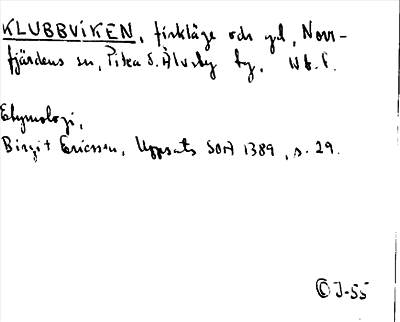 KLUBBVIKEN, fiskläge och gd, Norr-
fjärdens sn, Piteå o. Älvsby tg. Nb. l.
Etymologi,
Birgit Ericsson, Uppsats SOA 1389, s. 29.
© J-55